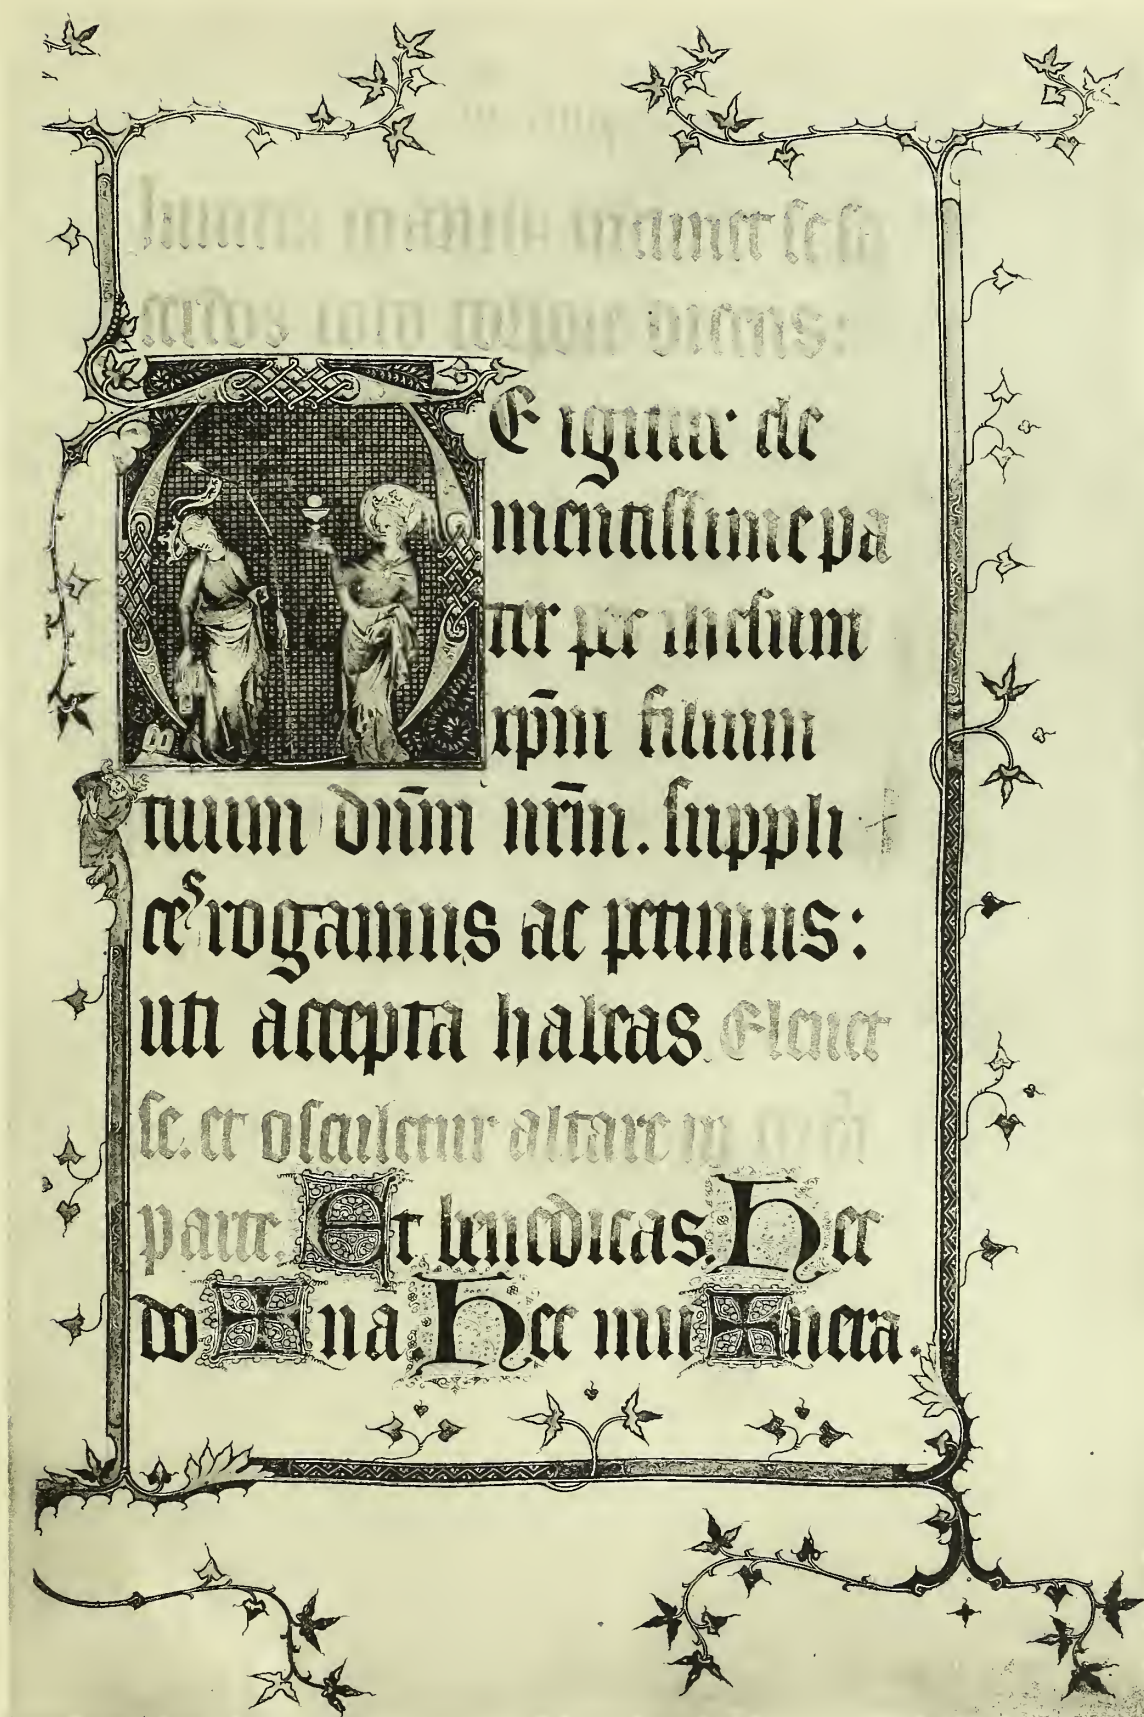 inclinet se sa
cerdos toto corpore dicens:
TE igitur cle
mentissime pa
ter per ihesum
xp̄m filium
tuum dn̄m nr̄m. suppli
ces rogamus ac petimus:
uti accepta habeas. Eleuet
se. et osculetur altare in
parte. Et benedicas. Hec
do ✠ na. Hec mu ✠ nera.